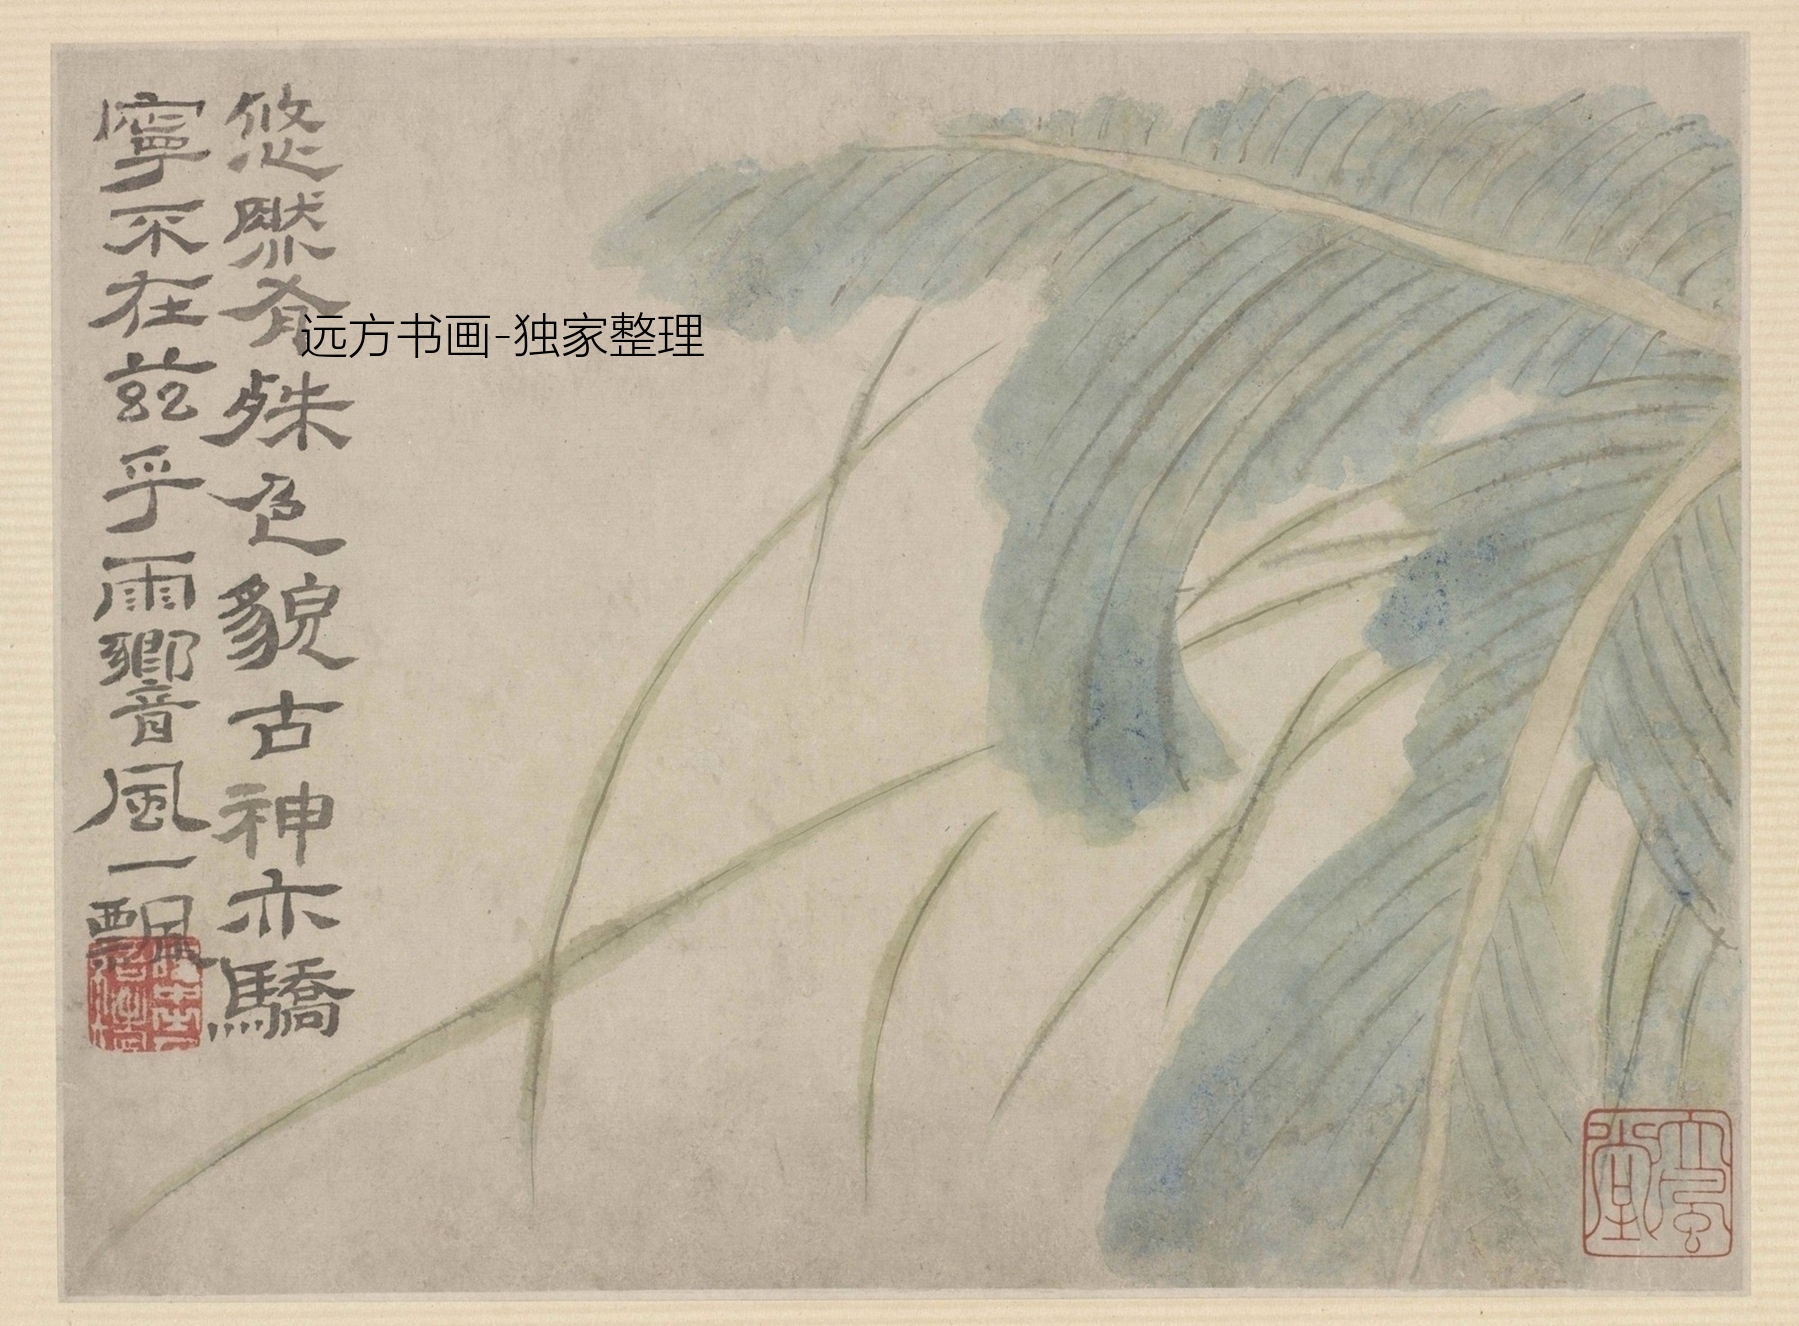 悠然有殊色貌古神亦驕
寧不在兹乎雨響風一飄
远方书画-独家整理